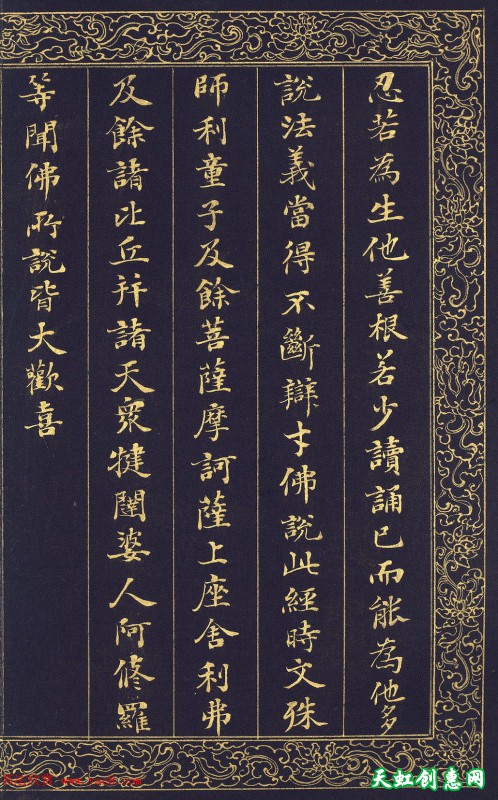 忍若為生他善根若少讀誦已而能為他多
說法義當得不斷辯才佛說此經時文殊
師利童子及餘菩薩摩訶薩上座舍利弗
及餘諸比丘并諸天眾犍闥婆人阿修羅
等聞佛所說皆大歡喜
天虹创惠网